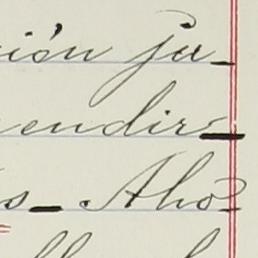 ión ju-
endir-
s - Aho-